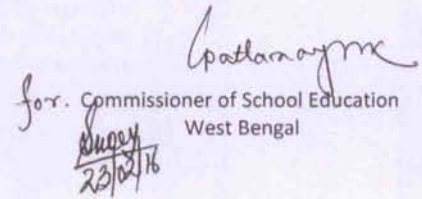 for. Commissioner of School Education
West Bengal
23/02/16